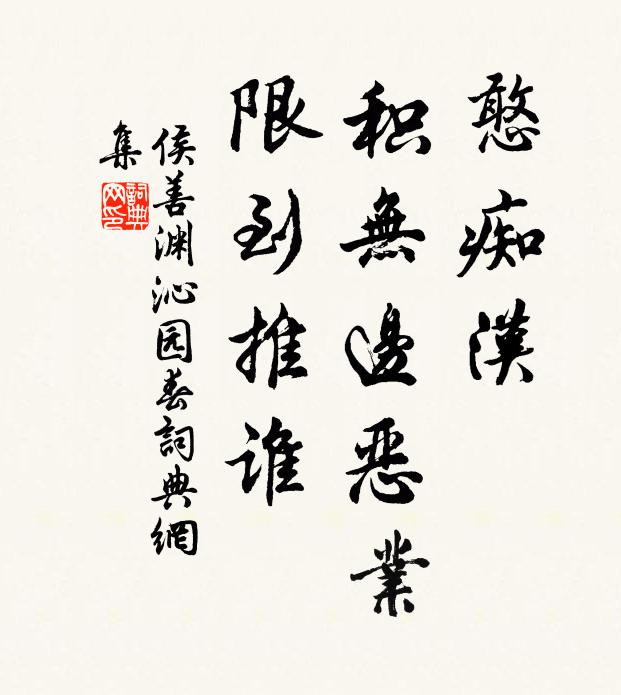 憨痴漢
积無邊惡業
限到推谁
侯善渊沁园春詞典網
集
詞典网印